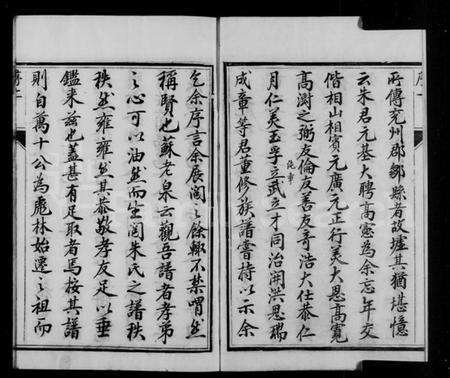 所傳兗州郡鄒縣者故墟其猶堪憶
云朱君元基大聘高憲為余忘年交
偕相山相賓元廣元正行美大恩高寬
高澍之弼友倫友善友奇浩大仕恭仁
月仁美玉孚立武立才同治開洪恩瑞
成章等君董修族譜嘗持以示余
乞余序言余展閱之餘輒不禁喟然
稱賢也蘇老泉云觀吾譜者孝弟
之心可以油然而生閱朱氏之譜秩
秩然雍雍然其恭敬孝友足以垂
鑑來茲也蓋甚有足取者焉按其譜
則自萬十公為麂林始遷之祖而